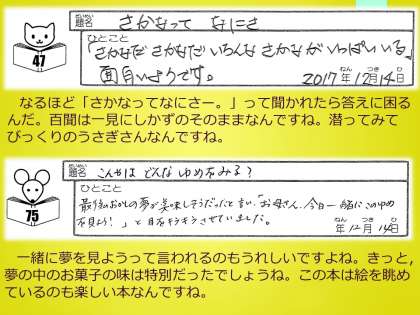 だいめい
題名 さかなって なにさ
ひとこと
「さかなだ さかなだ いろんな さかなが いっぱいいる」
ねん つき ひ
面白いようです。 2017年12月14日
47
なるほど「さかなってなにさー。」って聞かれたら答えに困る
んだ。百聞は一見にしかずのそのままなんですね。潜ってみて
びっくりのうさぎさんなんですね。
題名 こんやは どんな ゆめをみる?
ひとこと
最後のおかしの夢が美味しそうだったと言い「お母さん、今日一緒にこのゆめ
を見よう!」と目をキラキラさせていました。
ねん つき ひ
年12月14日
75
一緒に夢を見ようって言われるのもうれしいですよね。きっと,
夢の中のお菓子の味は特別だったでしょうね。この本は絵を眺め
ているのも楽しい本なんですね。